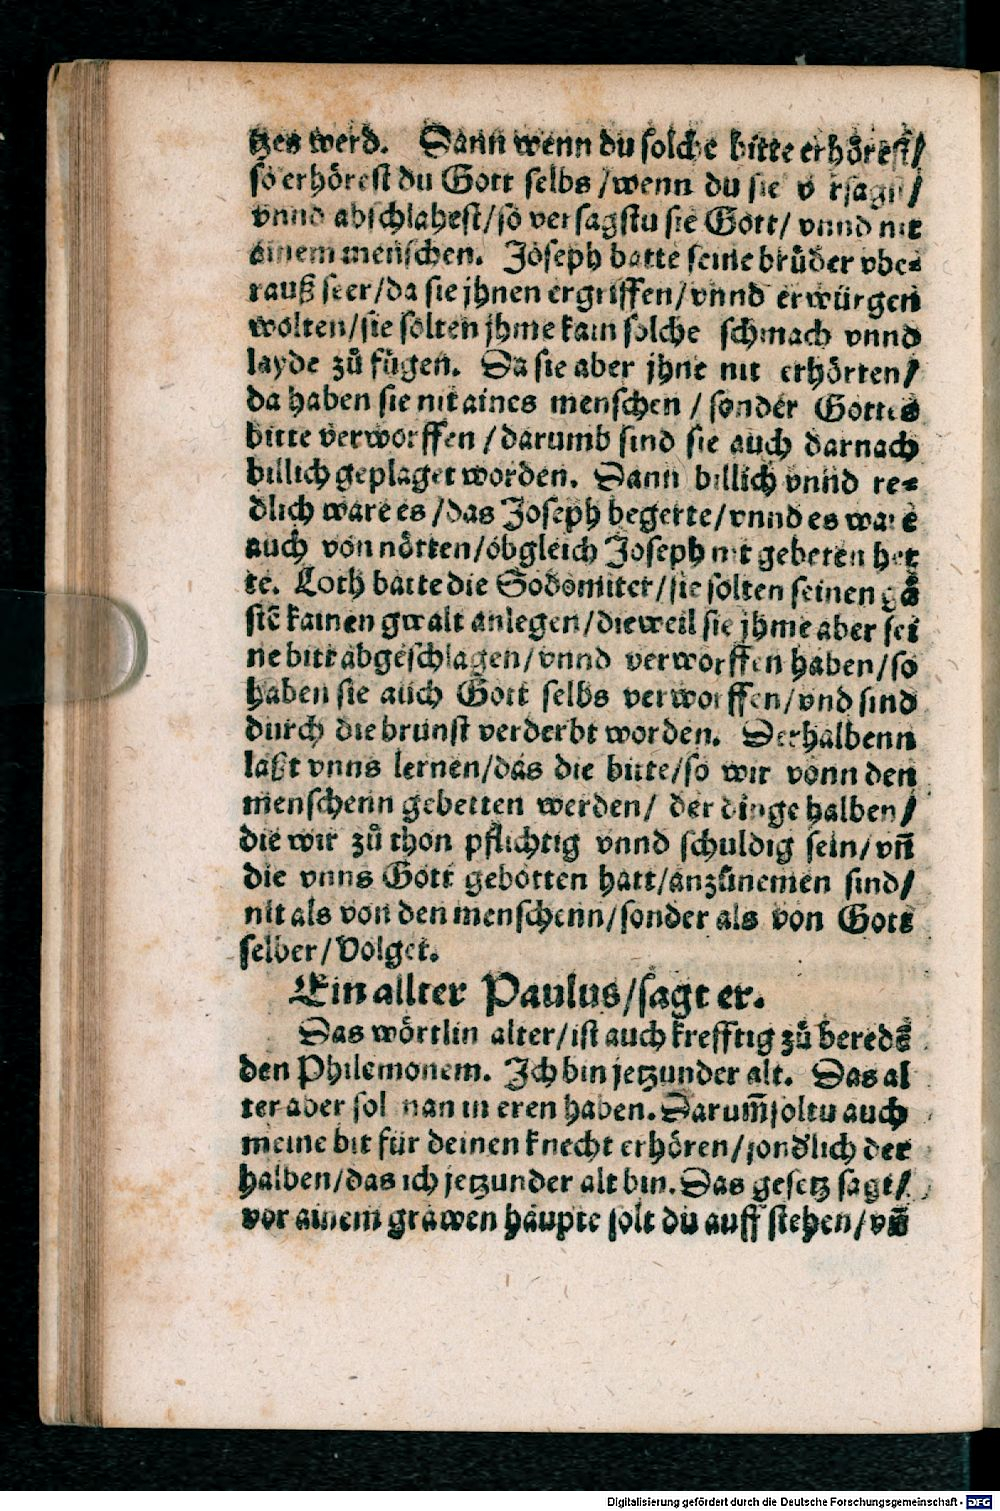 tzes werd. Dann wenn du solche bitte erhörest/
so erhörest du Gott selbs/wenn du sie v rsagst/
vnnd abschlahest/so versagstu sie Gott/ vnnd nit
ainem menschen. Joseph batte seine brůder vbe⸗
rauß seer/da sie jhnen ergriffen/vnnd erwürgen
wolten/sie solten jhme kain solche schmach vnnd
layde zů fügen. Da sie aber jhne nit erhörten/
da haben sie nit aines menschen / sonder Gottes
bitte verworffen /darumb sind sie auch darnach
billich geplaget worden. Dann billich vnnd re⸗
dlich ware es /das Joseph begerte/vnnd es ware
auch von nötten/obgleich Joseph nit gebeten het
te. Loth batte die Sodomiter/sie solten seinen gå
stē kainen gwalt anlegen/dieweil sie jhme aber sei
ne bitt abgeschlagen/vnnd verworffen haben/so
haben sie auch Gott selbs verworffen/vnd sind
durch die brunst verderbt worden. Derhalbenn
laßt vnns lernen/das die bitte/so wir vonn den
menschenn gebetten werden/ der dinge halben/
die wir zů thon pflichtig vnnd schuldig sein/vñ
die vnns Gott gebotten hatt/anzůnemen sind/
nit als von den menschenn/sonder als von Gott
selber/Volget.
Ein allter Paulus/sagt er.
Das wörtlin alter/ist auch krefftig zů beredē
den Philemonem. Ich bin jetzunder alt. Das al
ter aber sol man in eren haben. Darum̃ soltu auch
meine bit für deinen knecht erhören/sond'lich der
halben/das ich jetzunder alt bin. Das gesetz sagt/
vor ainem grawen haupte solt du auff stehen/vñ
Digitalisierung gefördert durch die Deutsche Forschungsgemeinschaft - DFG